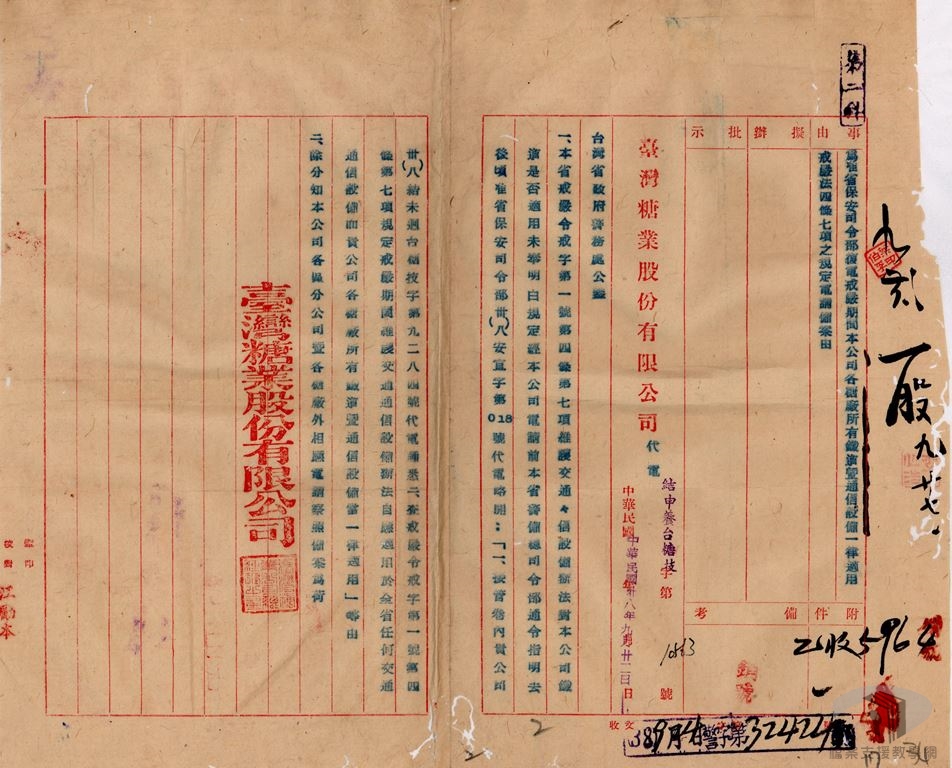 第二科
事由擬辦批示
為准省保安司令部復電戒嚴期間本公司各糖廠所有鐵道暨通信設備一律適用
戒嚴法四條七項之規定電請備案由
附件備考
臺灣糖業股份有限公司代電
結申養台糖技字第10563號
中華民國年月日
中華民國卅八年九月廿二日
台灣省政府警務處公鑒
一、本省戒嚴令戒字第一號第四條第七項維護交通々信設備辦法對本公司鐵
道是否適用未奉明白規定經本公司電請前本省警備總司令部通令指明去
後頃准省保安司令部卅八(八)安宣字第018號代電略開:「一、接管卷內貴公司
卅(八)結未迥台糖技字第九二八四號代電誦悉二、查戒嚴令戒字第一號第四
條第七項規定戒嚴期間維護交通通信設備辦法自應適用於全省任何交通
通信設備而貴公司各糖廠所有鐵道暨通信設備當一律適用」等由
二、除分知本公司各區分公司暨各糖廠外相應電請察照備案為荷
臺灣糖業股份有限公司
監印
校對
江勵本
股九廿七
收5964
收文
警字第32424
檔案支援教學網